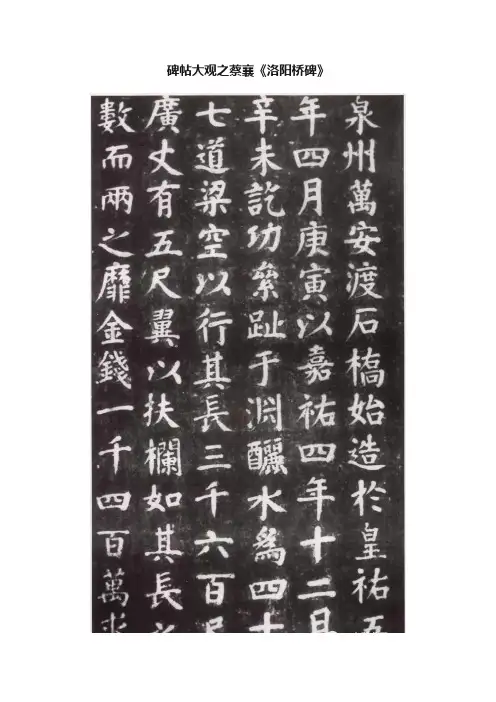 碑帖大观之蔡襄《洛阳桥碑》
泉州萬安渡石橋始造於皇祐五
年四月庚寅以嘉祐四年十二月
辛未訖功絫趾于淵釃水爲四十
七道梁空以行其長三千六百尺
廣丈有五尺翼以扶欄如其長之
數而兩之靡金錢一千四百萬求